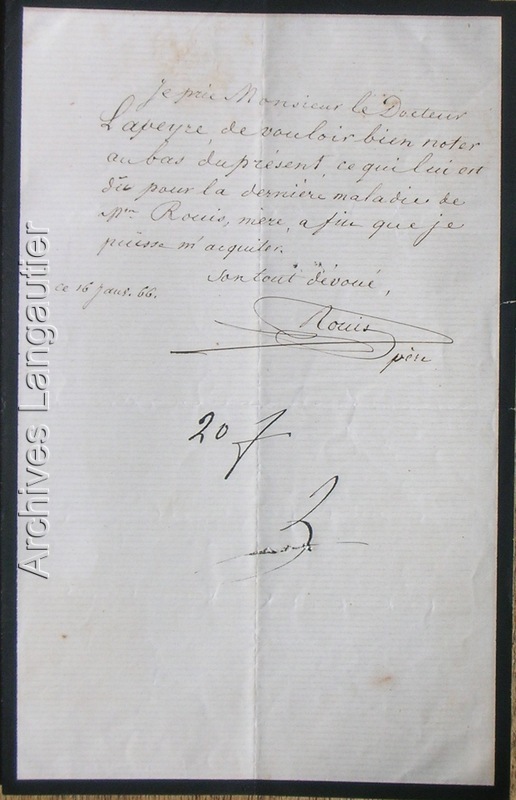 Je prie Monsieur le Docteur
Lapeyre, de vouloir bien noter
au bas du présent, ce qui lui est
dû pour la dernière maladie de
Mme Rouis, mère, afin que je
puisse m'acquiter.
Son tout dévoué,
ce 16 janv. 66.
Rouis
père
20 f
Archives Langautier